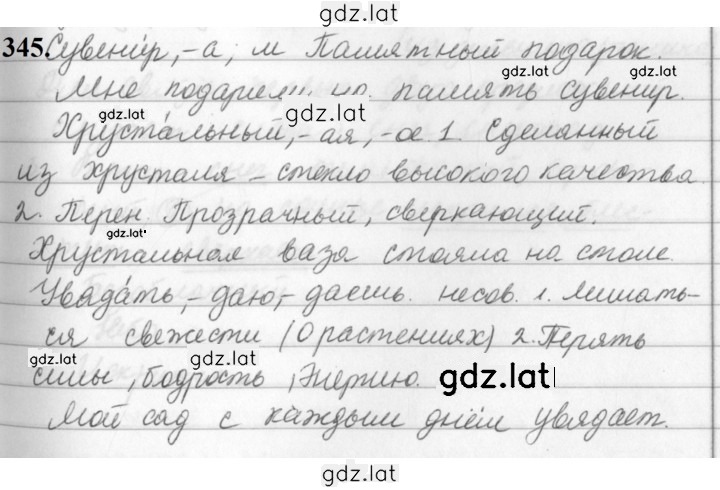 gdz.lat
345. Сувени́р, -а, м Памятный подарок.
gdz.lat gdz.lat
Мне подарили на память сувенир.
gdz.lat gdz.lat
Хруста́льный, -ая, -ое 1. Сделанный
из хрусталя - стекло высокого качества.
2. Перен. Прозрачный, сверкающий.
gdz.lat
Хрустальная ваза стояла на столе.
Увяда́ть, - даю, - даешь. несов. 1. Лишать-
ся свежести (О растениях) 2. Перять
gdz.lat gdz.lat
силы, бодрость, Энергию. gdz.lat
Мой сад с каждым днём увядает.
gdz.lat